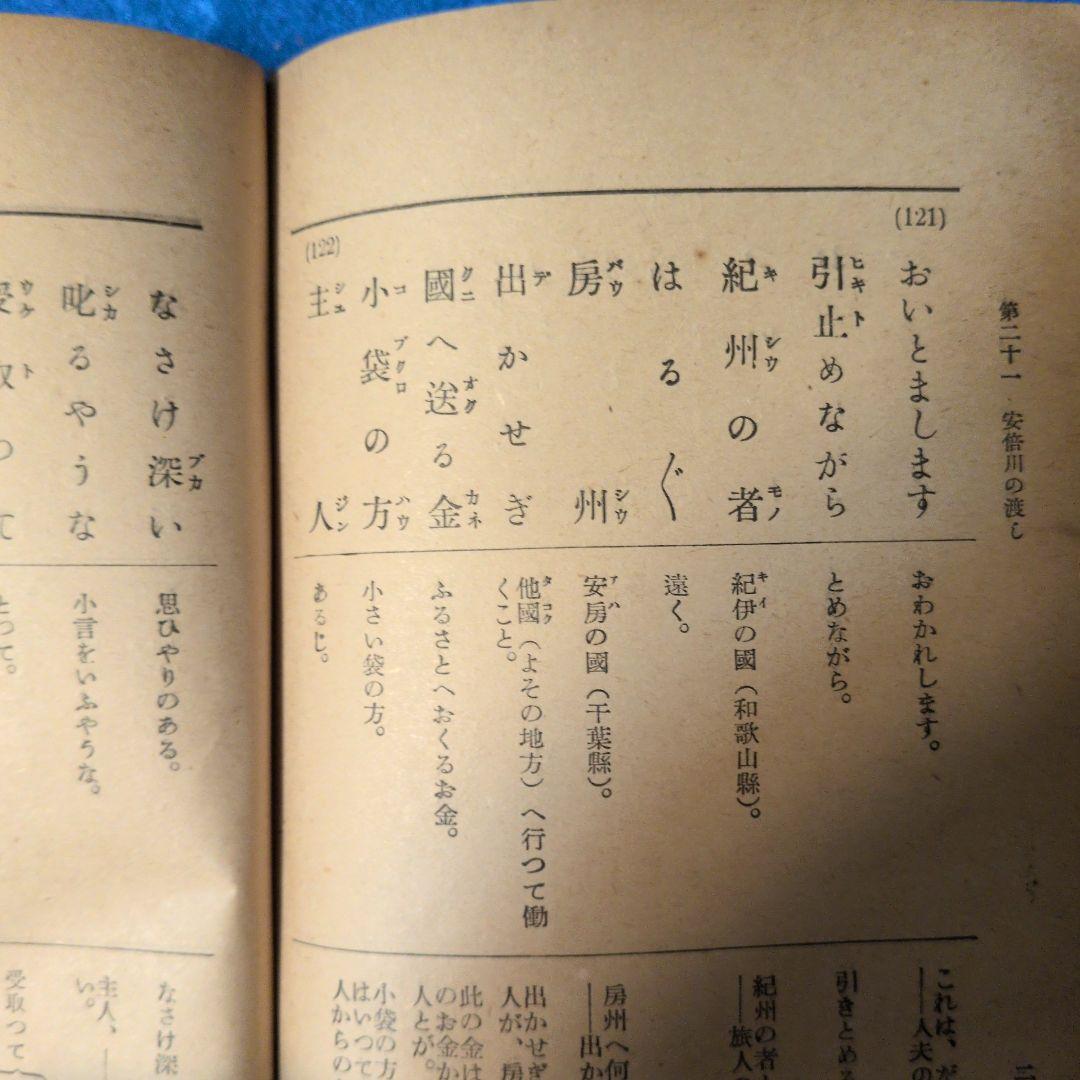 第二十一 安倍川の渡し
三
(121)
おいとまします
おわかれします。
これは、だ
——人夫の
引止めながら
ヒキト
とめながら。
引きとめる
紀州の者
キシウ モノ
紀伊の國(和歌山縣)。
キイ
紀州の者
——旅人の
はるぐ〵
遠く。
房州
バウシウ
安房の國(千葉縣)。
アハ
房州へ何
——出か
出かせぎ
デ
他國(よその地方)へ行つて働
タコク
くこと。
出かせぎ
人が、房
國へ送る金
クニ オク カネ
ふるさとへおくるお金。
此の金は
のお金か
人とが。
小袋の方
コブクロ ハウ
小さい袋の方。
小袋の方
はいつて
人からの
(122)
主人
シュジン
あるじ。
なさけ深い
ブカ
思ひやりのある。
なさけ深
い。
主人、——
叱るやうな
シカ
小言をいふやうな。
受取つて
ウケト
とつて。
受取つて